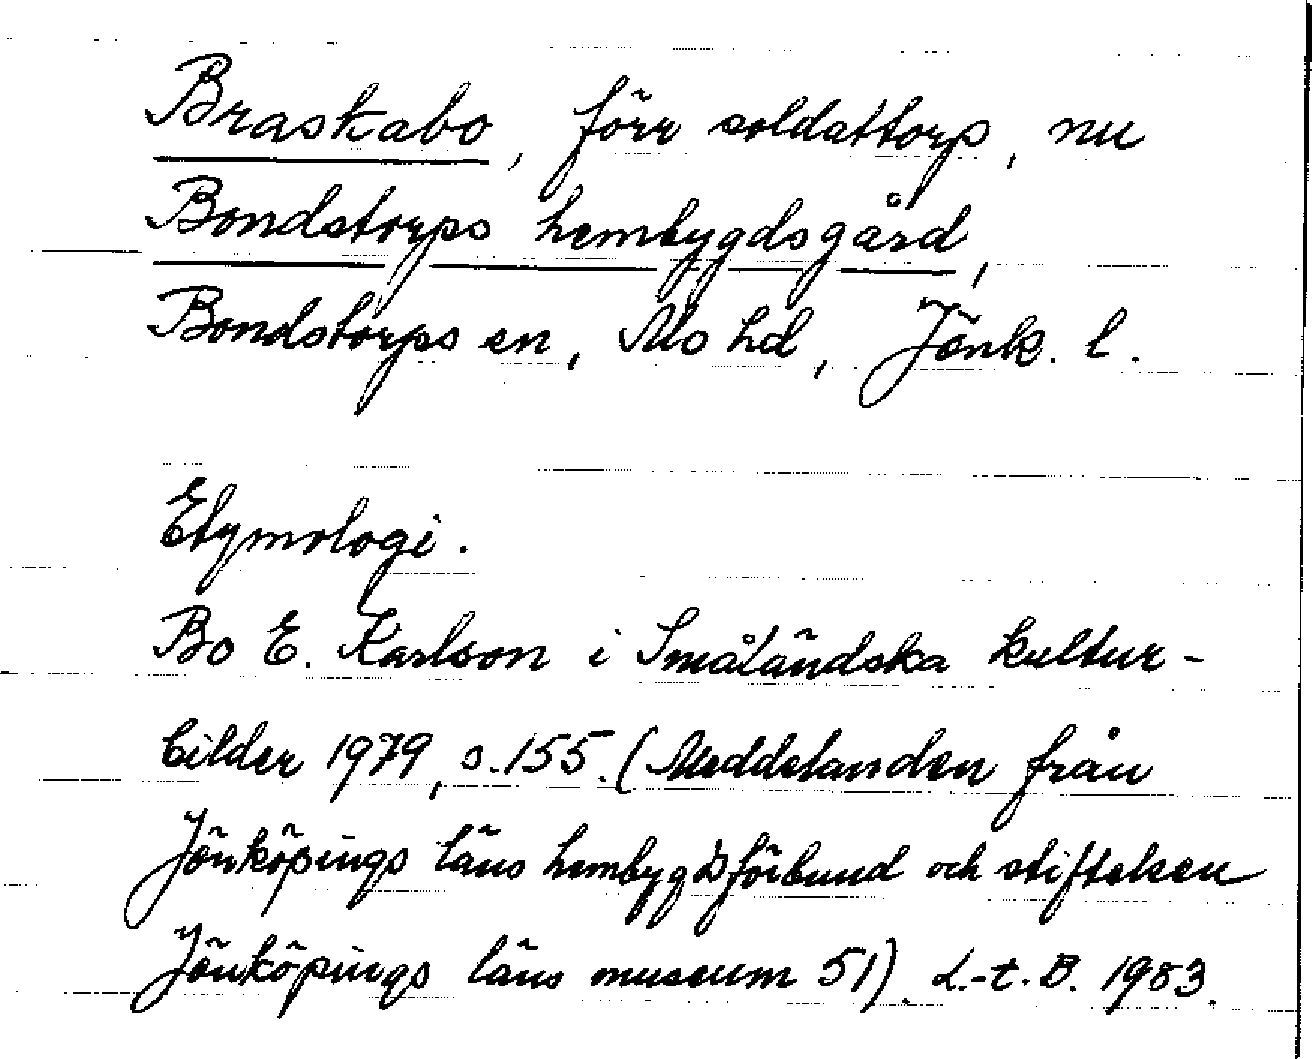 Braskabo, förr soldattorp, nu
Bondstorps hembygdsgård,
Bondstorps sn, Mo hd, Jönk. l.
Etymologi.
Bo E. Karlson i Småländska kultur-
bilder 1979, s. 155. (Meddelanden från
Jönköpings läns hembygdsförbund och stiftelsen
Jönköpings läns museum 51). L.-t. B. 1983.